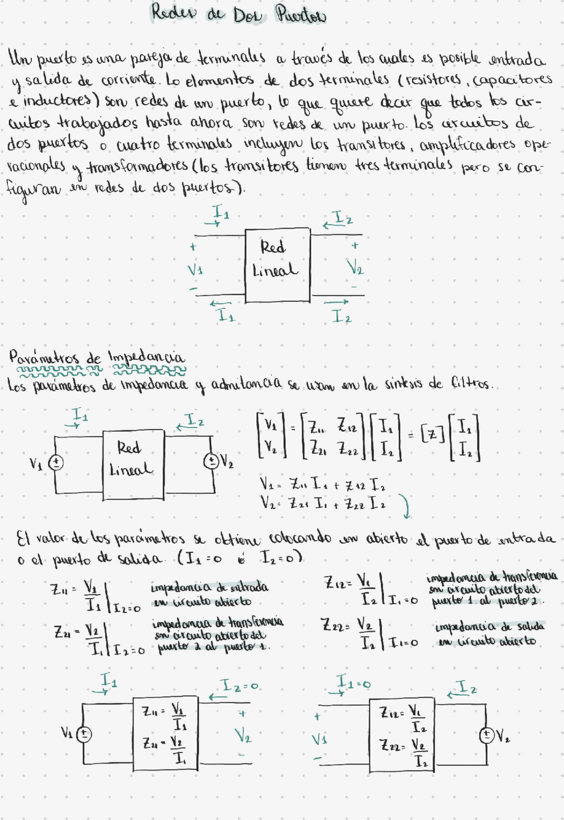 Redes de Dos Puertos
Un puerto es una pareja de terminales a través de los cuales es posible entrada
y salida de corriente. Lo elementos de dos terminales (resistores, capacitores
e inductores) son redes de un puerto, lo que quiere decir que todos los cir-
cuitos trabajados hasta ahora son redes de un puerto. Los circuitos de
dos puertos o cuatro terminales incluyen los transitores, amplificadores ope-
racionales y transformadores (los transitores tienen tres terminales pero se con-
figuran en redes de dos puertos).
I₁ I₂
+ Red +
V₁ Lineal V₂
- -
I₁ I₂
Parámetros de Impedancia
Los parámetros de impedancia y admitancia se usan en la sintesis de filtros.
I₁ I₂
V₁ + - Red Lineal + - V₂
[V₁ V₂] = [Z₁₁ Z₁₂ Z₂₁ Z₂₂] [I₁ I₂] = [Z] [I₁ I₂]
V₁ = Z₁₁ I₁ + Z₁₂ I₂
V₂ = Z₂₁ I₁ + Z₂₂ I₂
El valor de los parámetros se obtiene colocando en abierto el puerto de entrada
o el puerto de salida. (I₁=0 ó I₂=0)
Z₁₁ = V₁/I₁ | I₂=0 impedancia de entrada
en circuito abierto
Z₂₁ = V₂/I₁ | I₂=0 impedancia de transferencia
en circuito abierto del
puerto 2 al puerto 1.
Z₁₂ = V₁/I₂ | I₁=0 impedancia de transferencia
en circuito abierto del
puerto 1 al puerto 2.
Z₂₂ = V₂/I₂ | I₁=0 impedancia de salida
en circuito abierto
I₁ I₂=0
V₁ + - Z₁₁ = V₁/I₁ + V₂ -
Z₂₁ = V₂/I₁
I₁=0 I₂
+ V₁ - Z₁₂ = V₁/I₂ + - V₂
Z₂₂ = V₂/I₂